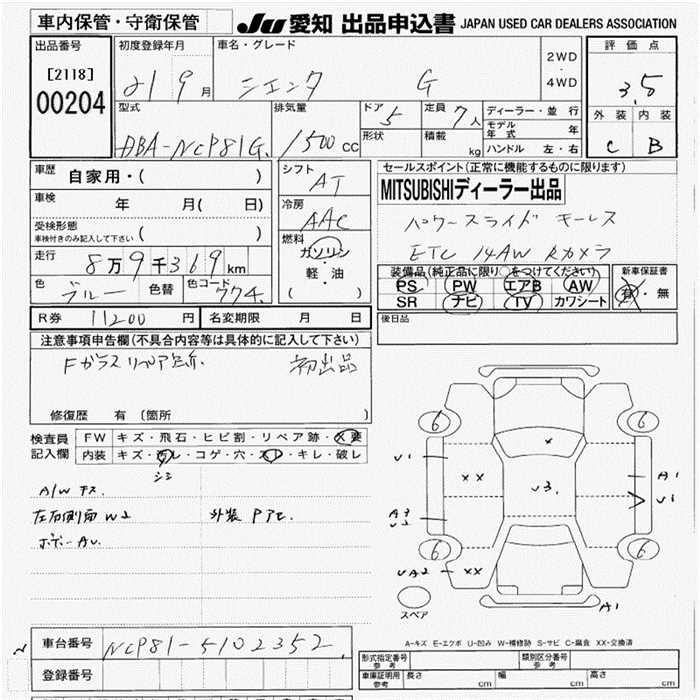 車内保管・守衛保管
JU 愛知 出品申込書 JAPAN USED CAR DEALERS ASSOCIATION
出品番号
[2118]
00204
初度登録年月
21 9 月
車名・グレード
シエンタ G
2WD
4WD
評価点
3.5
外装 内装
C B
型式
DBA-NCP81G
排気量
1500 cc
ドア
5
定員
7 人
形状
積載
kg
ディーラー・並行
モデル年式 年
ハンドル 左・右
車歴
自家用・( )
車検
年 月( 日)
受検形態
車検付きのみ記入して下さい ( )
走行
8万9千369km
色
ブルー
色替
色コード
774
シフト
AT
冷房
AAC
燃料
ガソリン
軽・油
( )
セールスポイント(正常に機能するものに限ります)
MITSUBISHIディーラー出品
パワースライド キーレス
ETC 14AW Rカメラ
装備品(純正品に限り○をつけてください)
PS PW エアB AW
SR ナビ TV カワシート
新車保証書
有・無
R券 11200円
名変期限 月 日
後日品
注意事項申告欄(不具合内容等は具体的に記入して下さい)
Fガラスリペア
初出品
修復歴 有 (箇所 )
検査員
記入欄
FW キズ・飛石・ヒビ割・リペア跡・X要
内装 キズ・汚レ・コゲ・穴・スレ・キレ・破レ
シミ
A/W キズ
左右側面 W2
外装 Pアセ
ボデー AU
6 6
6 6
U1
A3
U2
UA2
XX
XX
X
U3
XX
A1
U1
A1
スペア
A-キズ E-エクボ U-凹み W-補修跡 S-サビ C-腐食 XX-交換済
車台番号
NCP81-5102352
登録番号
形式指定番号
参考
類別区分番号
参考
車庫証明用
参考
長さ cm
幅 cm
高さ cm